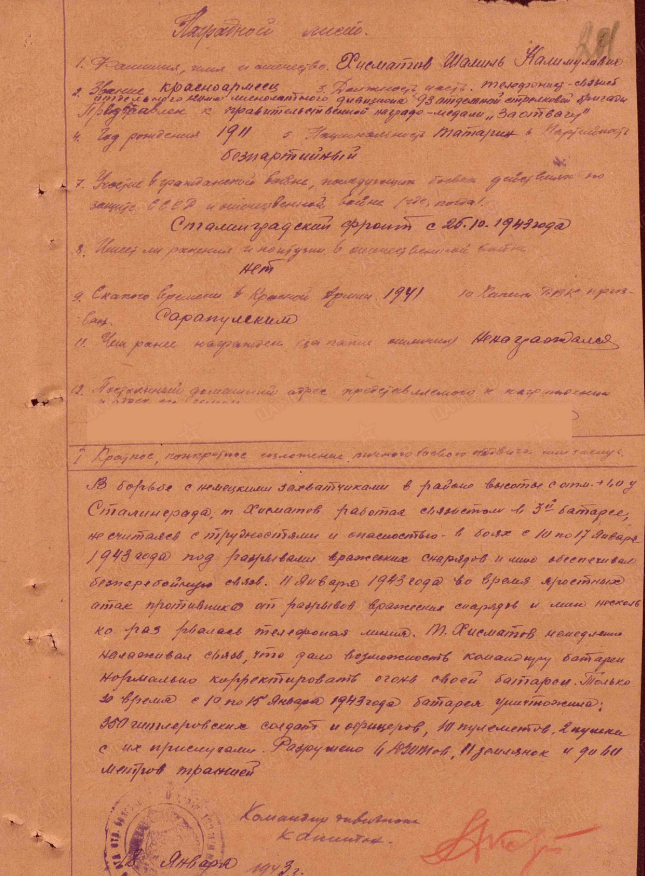 Наградной лист.
1. Фамилия, имя и отчество. Хисматов Шалиль Калимулович
2. Звание красноармеец 3. Должность, часть. телефонист-связист
отдельного минометного дивизиона 93 отдельной стрелковой бригады
Представлен к правительственной награде - медали „За отвагу“
4. Год рождения 1911 5. Национальность татарин 6. Партийность
безпартийный
7. Участие в гражданской войне, последующих боевых действиях по
защите СССР и отечественной войне (где, когда)
Сталинградский фронт с 25.10.1943 года
8. Имеет ли ранения и контузии в отечественной войне
нет
9. С какого времени в Красной Армии 1941 10. Каким РВК приз-
ван. Сарапульским
11. Чем ранее награжден (за какие отличия) Ненаграждался
12. Постоянный домашний адрес представляемого к награждению
I Краткое, конкретное изложение личного боевого подвига или заслуг.
В борьбе с немецкими захватчиками в районе высоты с отм. +1,0 у
Сталинграда, т. Хисматов работая связистом в 3й батарее,
не считаясь с трудностями и опасностью - в боях с 10 по 17 января
1943 года под разрывами вражеских снарядов и мин обеспечивал
безперебойную связь. 11 января 1943 года во время яростных
атак противника от разрывов вражеских снарядов и мин несколь
ко раз рвалась телефоная линия. Т. Хисматов немедленно
налаживал связь, что дало возможность командиру батареи
нормально корректировать огонь своей батареи. Только
за время с 10 по 15 января 1943 года батарея уничтожила:
350 гитлеровских солдат и офицеров, 10 пулеметов, 2 пушки
с их прислугами. Разрушено 4 ДЗОТов, 11 землянок и до 60
метров траншей
Командир дивизиона
капитан.
января
1943 г.